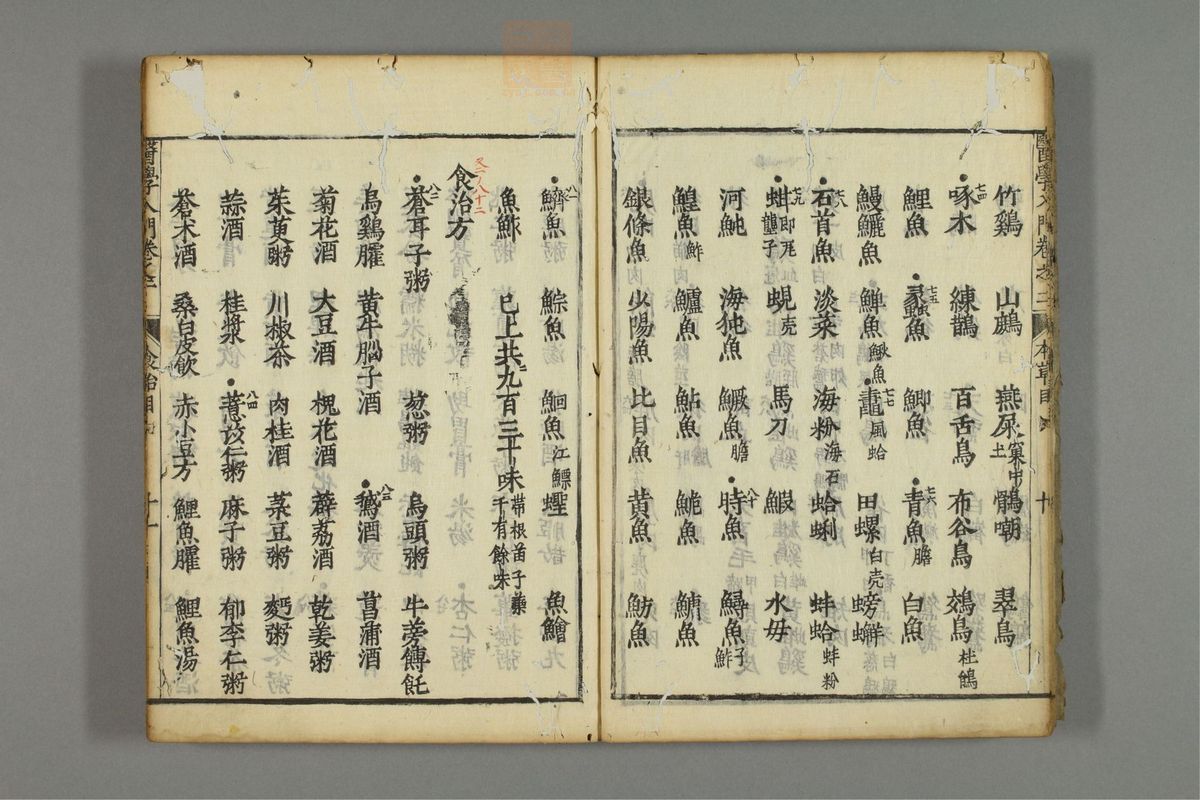 竹鷄 山鷓 燕屎窠中土 鶻嘲 翠鳥
七四 啄木 練鵲 百舌鳥 布谷鳥 鴆鳥杜鵑
鯉魚 七五 蠡魚 鯽魚 七六 青魚膽 白魚
鰻鱺魚 鱓魚鰍魚 七七 鼃風蛤 田螺白壳 螃蠏
七八 石首魚 淡菜 海粉海石 蛤蜊 蚌蛤蚌粉
七九 蚶即瓦壟子 蜆壳 馬刀 鰕 水母
河魨 海㹠魚 鱖魚膽 八十 時魚 鱘魚子鮓
鰉魚鮓 鱸魚 鮎魚 鮠魚 鯆魚
銀條魚 少陽魚 比目魚 黄魚 魴魚
八一 鱭魚 鯮魚 鮰魚江鰾 蟶 魚鱠
魚鮓 已上共九百三十味帶根苗子藥千有餘味
食治方
八二 蒼耳子粥 葱粥 烏頭粥 牛蒡餺飥
烏鷄臛 黄牛腦子酒 八三 鵝酒 菖蒲酒
菊花酒 大豆酒 槐花酒 薜荔酒 乾姜粥
茱萸粥 川椒茶 肉桂酒 菉豆粥 麫粥
蒜酒 桂漿 八四 薏苡仁粥 麻子粥 郁李仁粥
蒼朮酒 桑白皮飲 赤小豆方 鯉魚臛 鯉魚湯
醫學入門卷之二 本草目 十
醫學入門卷之二 食治目 十一